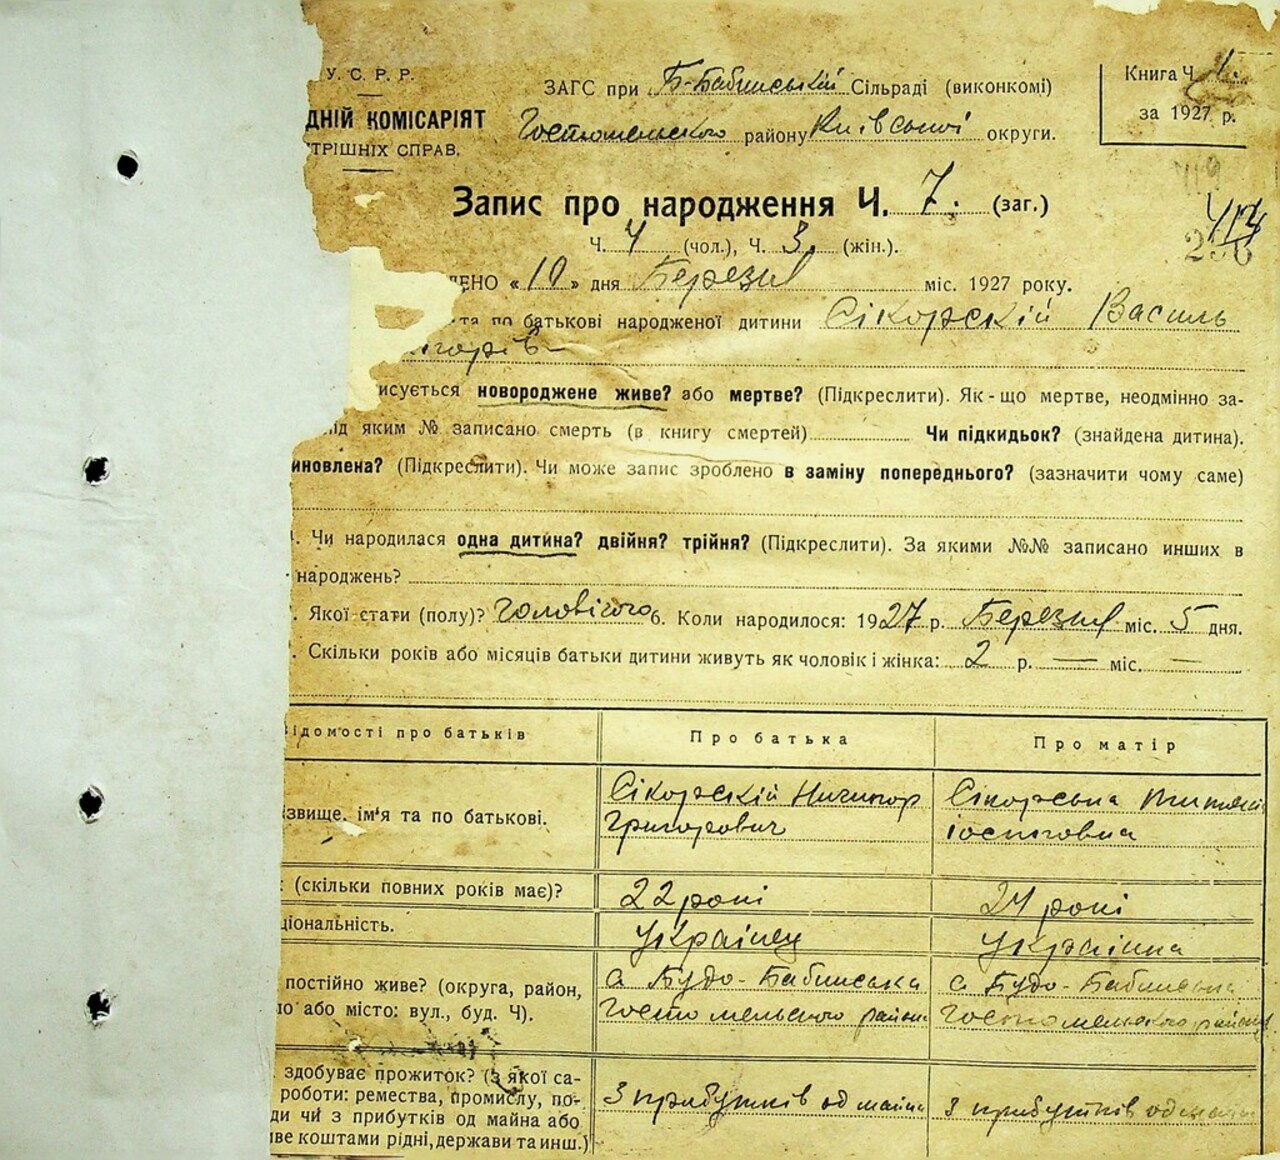 У. С. Р. Р.
ДНІЙ КОМІСАРІЯТ
ТРІШНІХ СПРАВ.
ЗАГС при Б-Бабинській Сільраді (виконкомі)
Гостомельского району Київської округи.
Книга Ч. 1.
за 1927 р.
Запис про народження Ч. 7. (заг.)
414
Ч. 4 (чол.), Ч. 3 (жін.).
ЕНО «10» дня Березня міс. 1927 року.
та по батькові народженої дитини Сікорскій Василь
исується новороджене живе? або мертве? (Підкреслити). Як-що мертве, неодмінно за-
під яким № записано смерть (в книгу смертей) Чи підкидьок? (знайдена дитина).
иновлена? (Підкреслити). Чи може запис зроблено в заміну попереднього? (зазначити чому саме)
. Чи народилася одна дитина? двійня? трійня? (Підкреслити). За якими №№ записано инших в
народжень?
. Якої стати (полу)? Чоловічого 6. Коли народилося: 1927 р. Березня міс. 5 дня.
. Скільки років або місяців батьки дитини живуть як чоловік і жінка: 2 р. — міс. —
ідомості про батьків
Про батька
Про матір
ізвище, ім'я та по батькові.
Сікорскій Ничипор
Григорович
Сікорська
(скільки повних років має)?
22 рокі
24 рокі
ціональність.
Українец
Українка
постійно живе? (округа, район,
ло або місто: вул., буд. Ч).
с Будо-Бабинська
Гостомельского района
с Будо-Бабинська
Гостомельского района
здобуває прожиток? (з якої са-
роботи: ремества, промислу, по-
ди чи з прибутків од майна або
ве коштами рідні, держави та инш.)
З прибутків од майна
З прибутків од майна